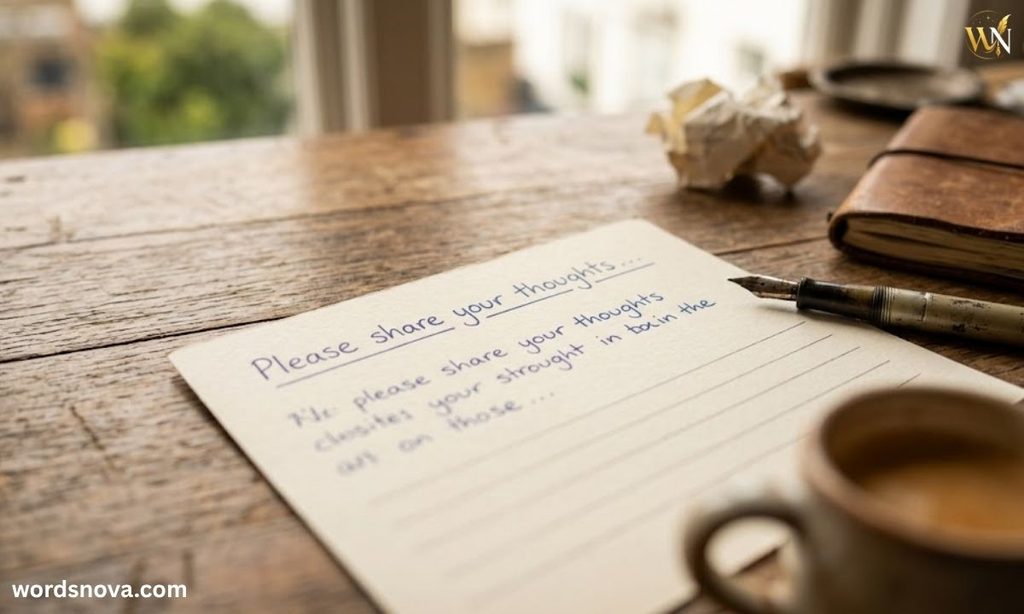 WN
Please share your thoughts...
please share your thoughts
closites your strought in boxin the
an on those ...
wordsnova.com